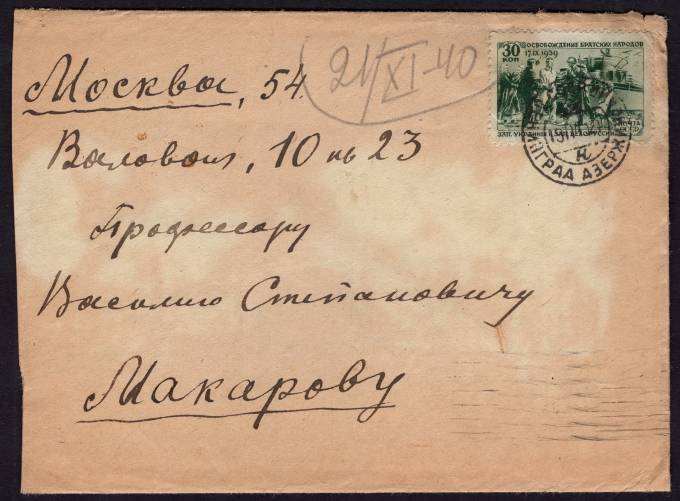 21/XI-40
30 КОП
ОСВОБОЖДЕНИЕ БРАТСКИХ НАРОДОВ
17.IX.1939
ПОЧТА
ЗАП. УКРАИНЫ И ЗАП. БЕЛОРУССИИ
Москва, 54
Валовая, 10 кв 23
Профессору
Василию Степановичу
Макарову